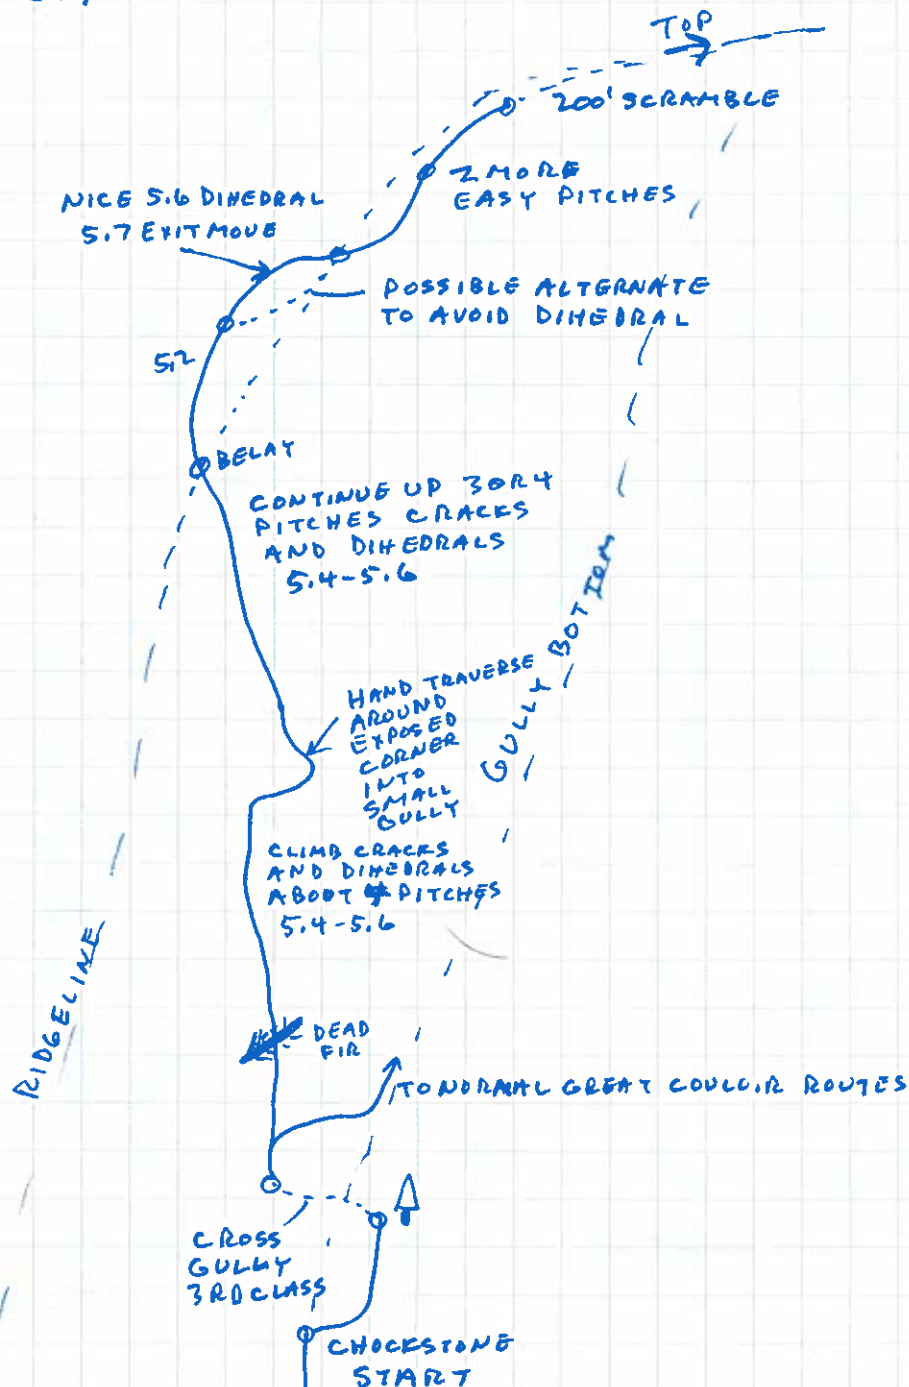 TOP
200' SCRAMBLE
2 MORE
EASY PITCHES
NICE 5.6 DIHEDRAL
5.7 EXIT MOVE
POSSIBLE ALTERNATE
TO AVOID DIHEDRAL
5.2
BELAY
CONTINUE UP 3 OR 4
PITCHES CRACKS
AND DIHEDRALS
5.4-5.6
GULLY BOTTOM
HAND TRAVERSE
AROUND
EXPOSED
CORNER
INTO
SMALL
GULLY
CLIMB CRACKS
AND DIHEDRALS
ABOUT PITCHES
5.4-5.6
RIDGELINE
DEAD
FIR
TO NORMAL GREAT COULOIR ROUTES
CROSS
GULLY
3RD CLASS
CHOCKSTONE
START